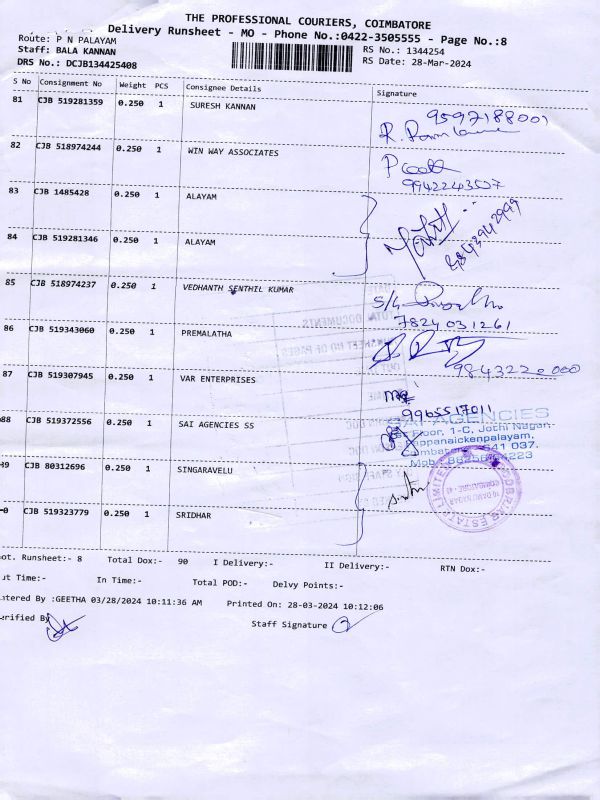 THE PROFESSIONAL COURIERS, COIMBATORE
Delivery Runsheet - MO - Phone No.:0422-3505555 - Page No.:8
Route: P N PALAYAM
RS No.: 1344254
Staff: BALA KANNAN
RS Date: 28-Mar-2024
DRS No.: DCJB134425408
S No Consignment No Weight PCS Consignee Details Signature
81 CJB 519281359 0.250 1 SURESH KANNAN
9597188001
82 CJB 518974244 0.250 1 WIN WAY ASSOCIATES
9942243507
83 CJB 1485428 0.250 1 ALAYAM
84 CJB 519281346 0.250 1 ALAYAM
85 CJB 518974237 0.250 1 VEDHANTH SENTHIL KUMAR
7824031261
86 CJB 519343060 0.250 1 PREMALATHA
9843220000
87 CJB 519307945 0.250 1 VAR ENTERPRISES
9965517011
88 CJB 519372556 0.250 1 SAI AGENCIES SS
SAI AGENCIES
Floor, 1-C, Jothi Nagar,
89 CJB 80312696 0.250 1 SINGARAVELU
0 CJB 519323779 0.250 1 SRIDHAR
ot. Runsheet:- 8 Total Dox:- 90 I Delivery:- II Delivery:- RTN Dox:-
ut Time:- In Time:- Total POD:- Delvy Points:-
ntered By :GEETHA 03/28/2024 10:11:36 AM Printed On: 28-03-2024 10:12:06
erified By
Staff Signature